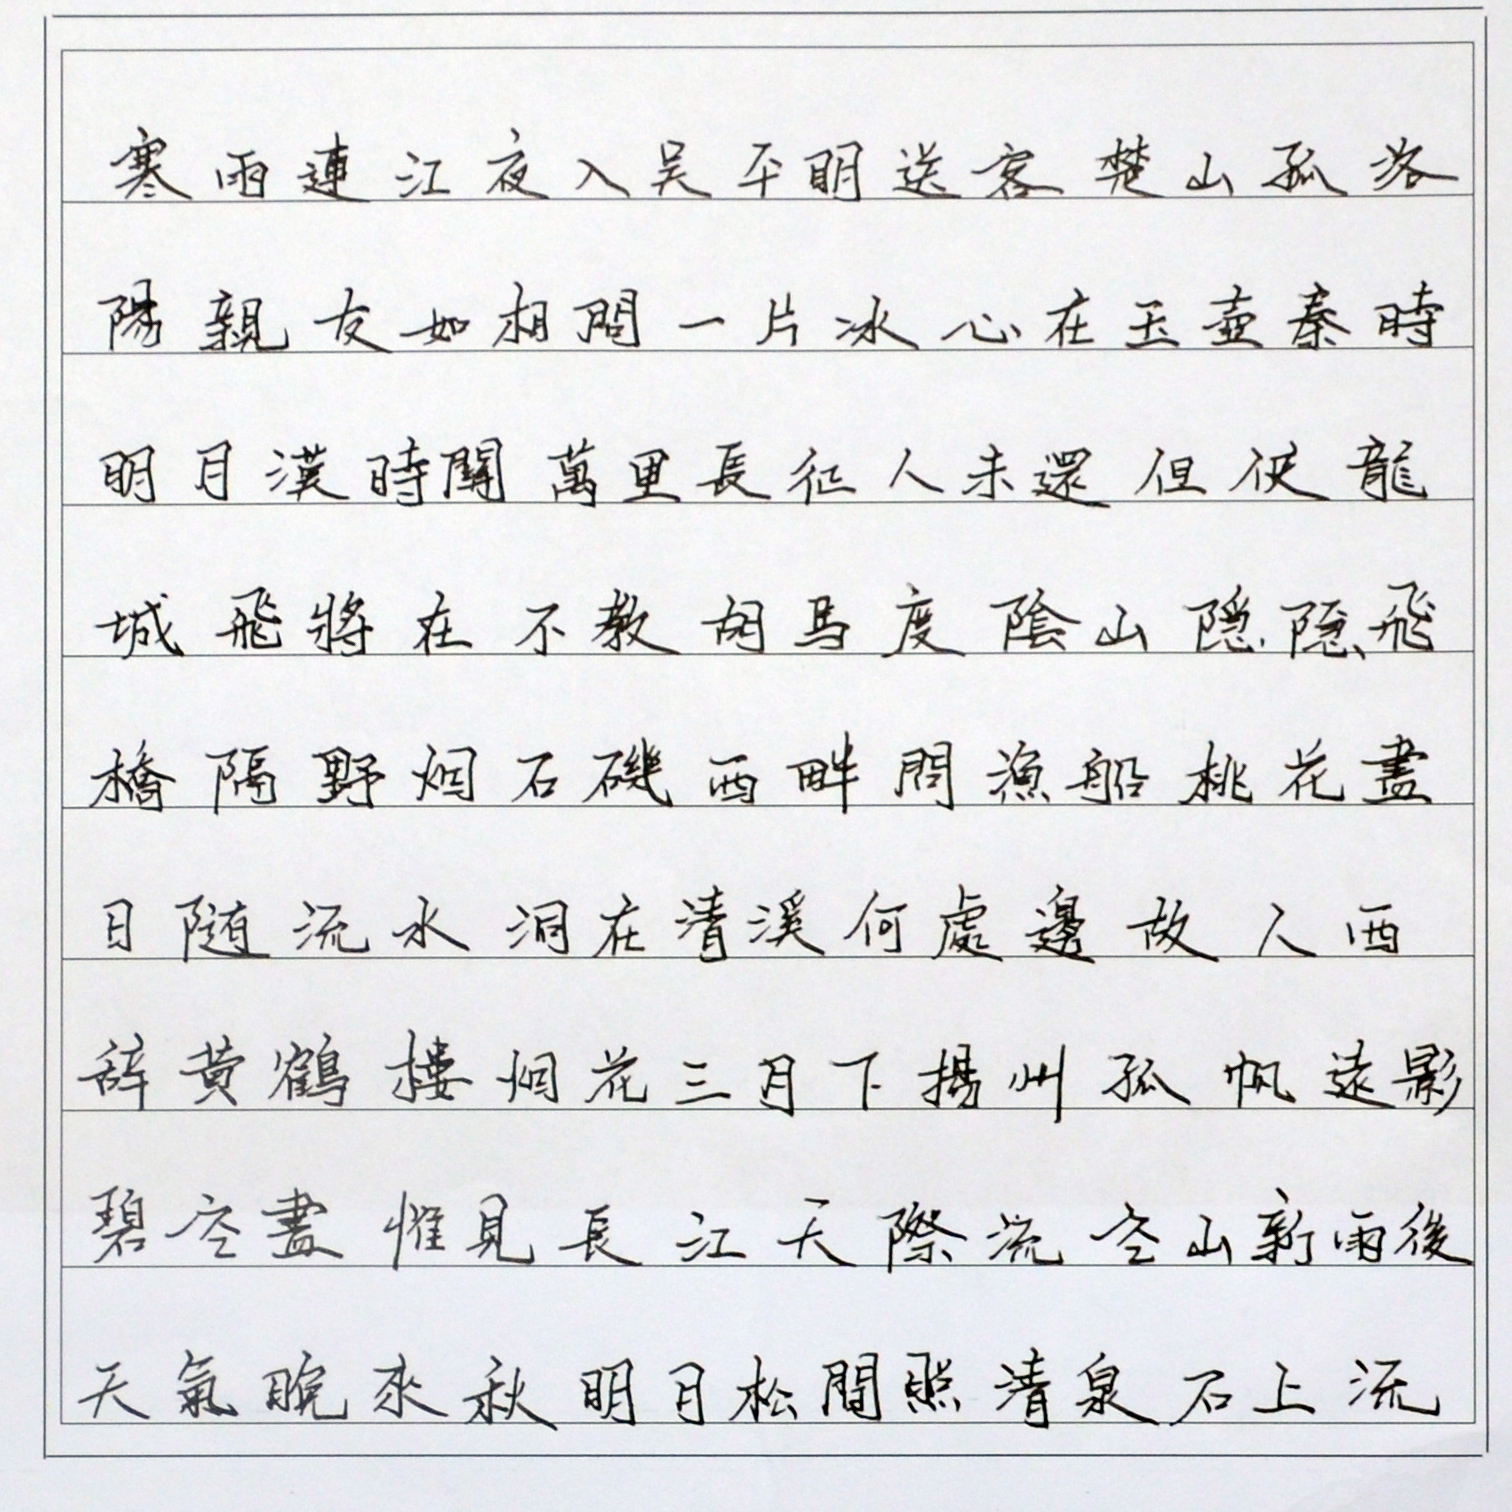 寒雨連江夜入吴平明送客楚山孤洛
陽親友如相問一片冰心在玉壺秦時
明月漢時關萬里長征人未還但使龍
城飛將在不教胡馬度陰山隐隐飛
橋隔野烟石磯西畔問漁船桃花盡
日随流水洞在清溪何處邊故人西
辞黄鶴樓烟花三月下揚州孤帆遠影
碧空盡惟見長江天際流空山新雨後
天氣晚來秋明月松間照清泉石上流